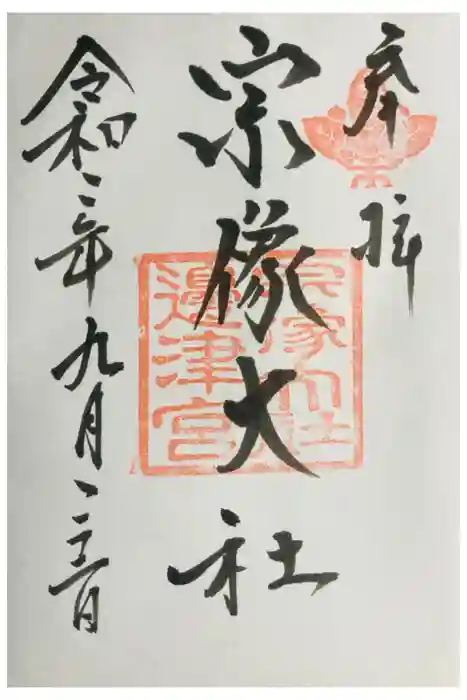 奉拝
宗像大社
宗像大社
邊津宮
令和二年九月